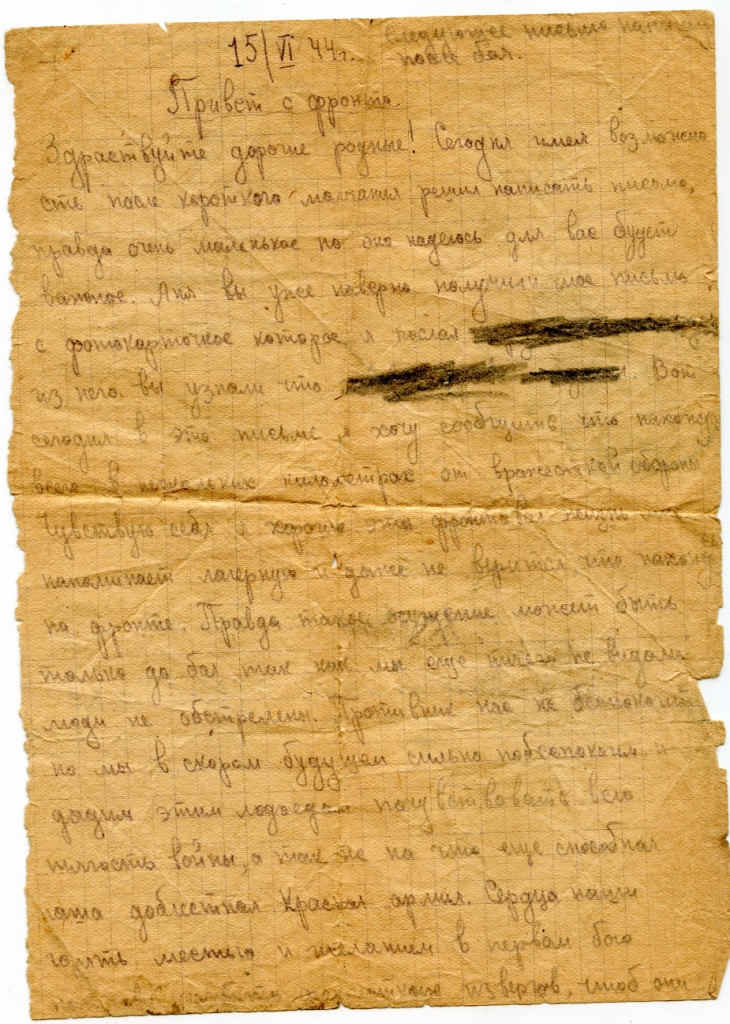 15/VI 44 г.
Следующее письмо напишу
после боя.
Привет с фронта.
Здраствуйте дорогие родные! Сегодня имея возможно
сть после короткого молчания решил написать письмо,
правда очень маленькое но оно надеюсь для вас будет
важное. Аня вы уже наверно получили мое письмо
с фотокарточкое которое я послал
из него вы узнали что Вот
сегодня в это письме я хочу сообщить что нахожу
всего в нескольких километрах от вражесткой обороны
Чувствую себя хорошо эта фронтовая жизнь мне
напоминает лагерную и даже не верится что нахожу
на фронте. Правда такое может быть
только до боя так как мы еще ничего не видали
люди не обстрелены. Противник нас не беспокоит
но мы в скором будущем сильно побеспокоим и
дадим этим людоедам почувствовать всю
тягость войны, а так же на что еще способная
наша доблестная Красная армия. Сердца наши
горять местью и желанием в первом бою
извергов, чтоб они